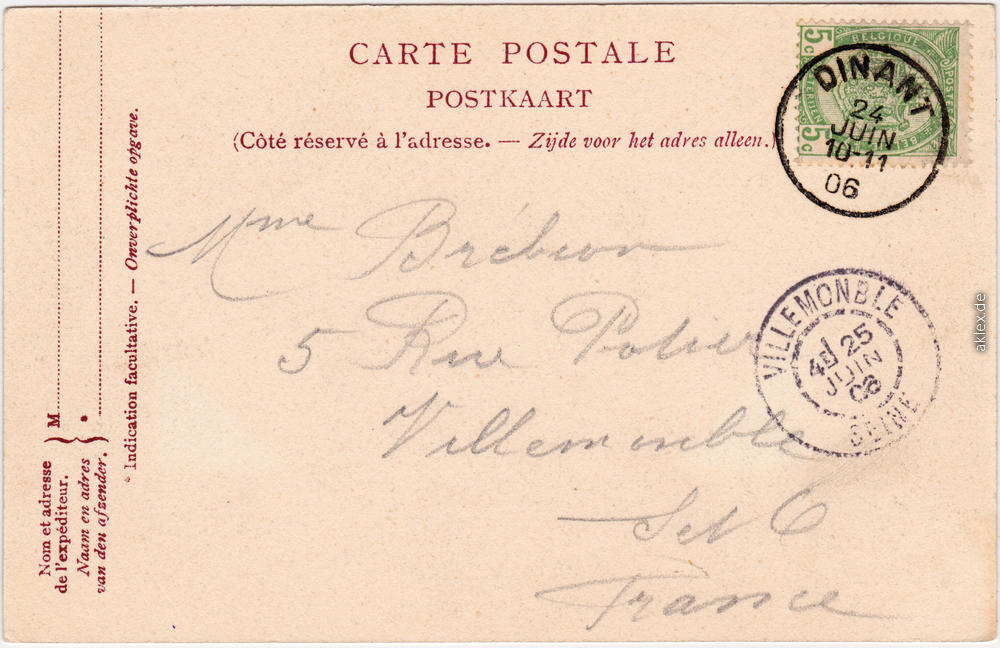 CARTE POSTALE
POSTKAART
(Côté réservé à l'adresse. — Zijde voor het adres alleen.)
5c BELGIQUE POST 5c BEL
DINANT
24
JUIN
10-11
06
Mme Brébion
5 Rue Potier
Villemomble
Set O
France
VILLEMONBLE
4E 25
JUIN
06
SEINE
Nom et adresse
de l'expéditeur.
Naam en adres
van den afzender.
M
*
* Indication facultative. — Onverplichte opgave.
aklex.de